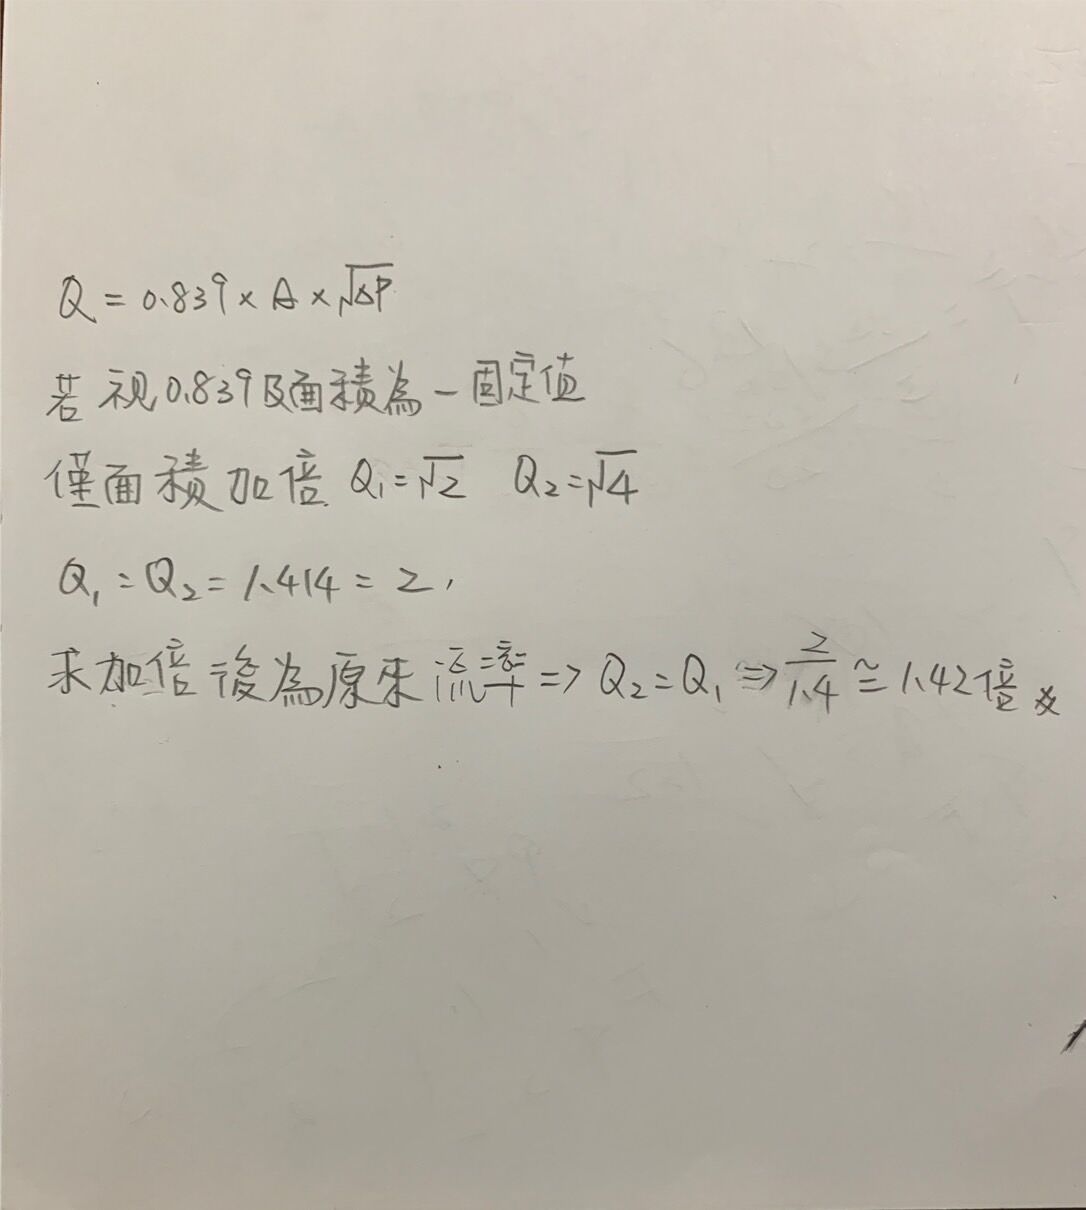 Q = 0.839 × A × √ΔP
若視0.839及面積為一固定值
僅面積加倍 Q₁=√2 Q₂=√4
Q₁:Q₂=1.414:2,
求加倍後為原來流率=> Q₂=Q₁ => 2/1.4 ≃ 1.42倍